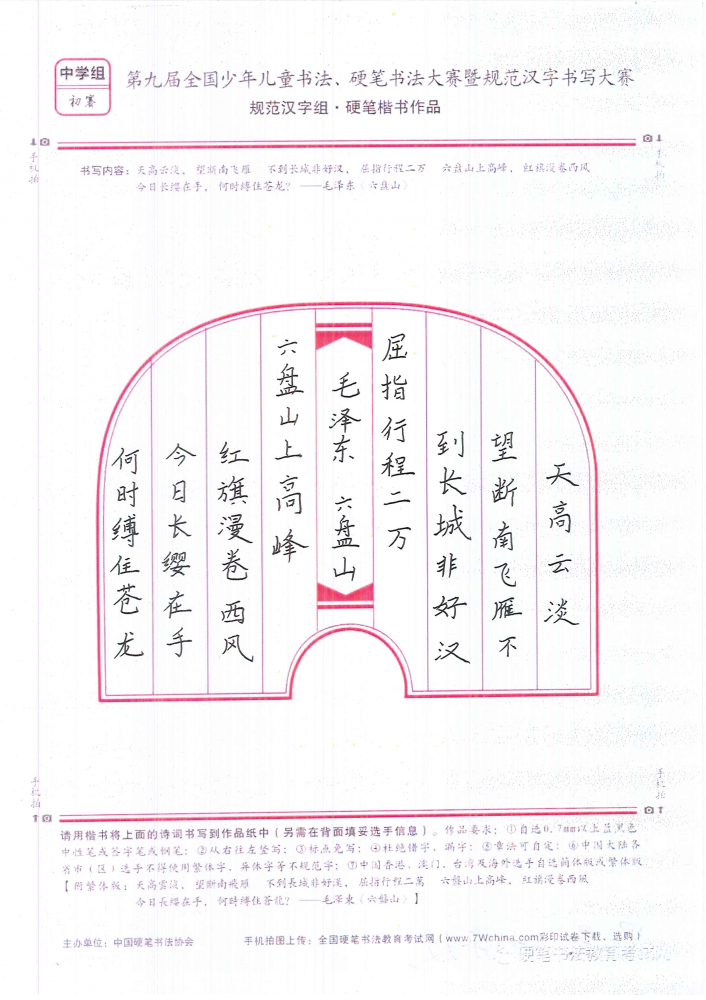 中学组
初赛
第九届全国少年儿童书法、硬笔书法大赛暨规范汉字书写大赛
规范汉字组·硬笔楷书作品
手机拍
手机拍
书写内容：天高云淡，望断南飞雁 不到长城非好汉，屈指行程二万 六盘山上高峰，红旗漫卷西风
今日长缨在手，何时缚住苍龙？——毛泽东（六盘山）
天高云淡
望断南飞雁不
到长城非好汉
屈指行程二万
毛泽东 六盘山
六盘山上高峰
红旗漫卷西风
今日长缨在手
何时缚住苍龙
手机拍
手机拍
请用楷书将上面的诗词书写到作品纸中（另需在背面填妥选手信息）。作品要求：①自选0.7mm以上蓝黑色
中性笔或签字笔或钢笔；②从右往左竖写；③标点免写；④杜绝错字，漏字；⑤章法可自定；⑥中国大陆各
省市（区）选手不得使用繁体字、异体字等不规范字；⑦中国香港、澳门、台湾及海外选手自选简体版或繁体版
【附繁体版：天高雲淡，望斷南飛雁 不到長城非好漢，屈指行程二萬 六盤山上高峰，紅旗漫卷西風
今日長纓在手，何時縛住蒼龍？——毛澤東（六盤山）】
主办单位：中国硬笔书法协会
手机拍图上传：全国硬笔书法教育考试网（www.7Wchina.com彩印试卷下载、选购）
硬笔书法教育考试网